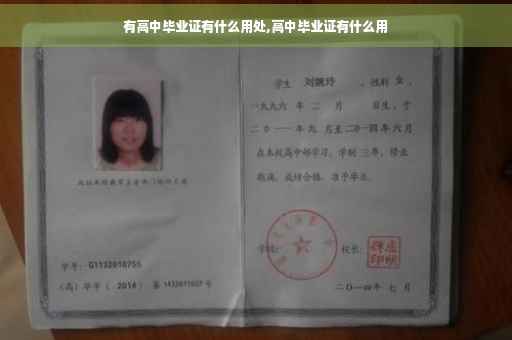 有高中毕业证有什么用处,高中毕业证有什么用
学生 刘婉玲 ，性别 女 ，
一九九六 年 二 月 日生，于
二〇一一 年 九 月至 二〇一四 年 六 月
在本校高中部学习，学制 三 年，修业
期满，成绩合格，准予毕业。
学号： G1132010755
（高）毕字（ 2014 ）第 1432011007 号
学校：
校长：
二〇一四年 七 月